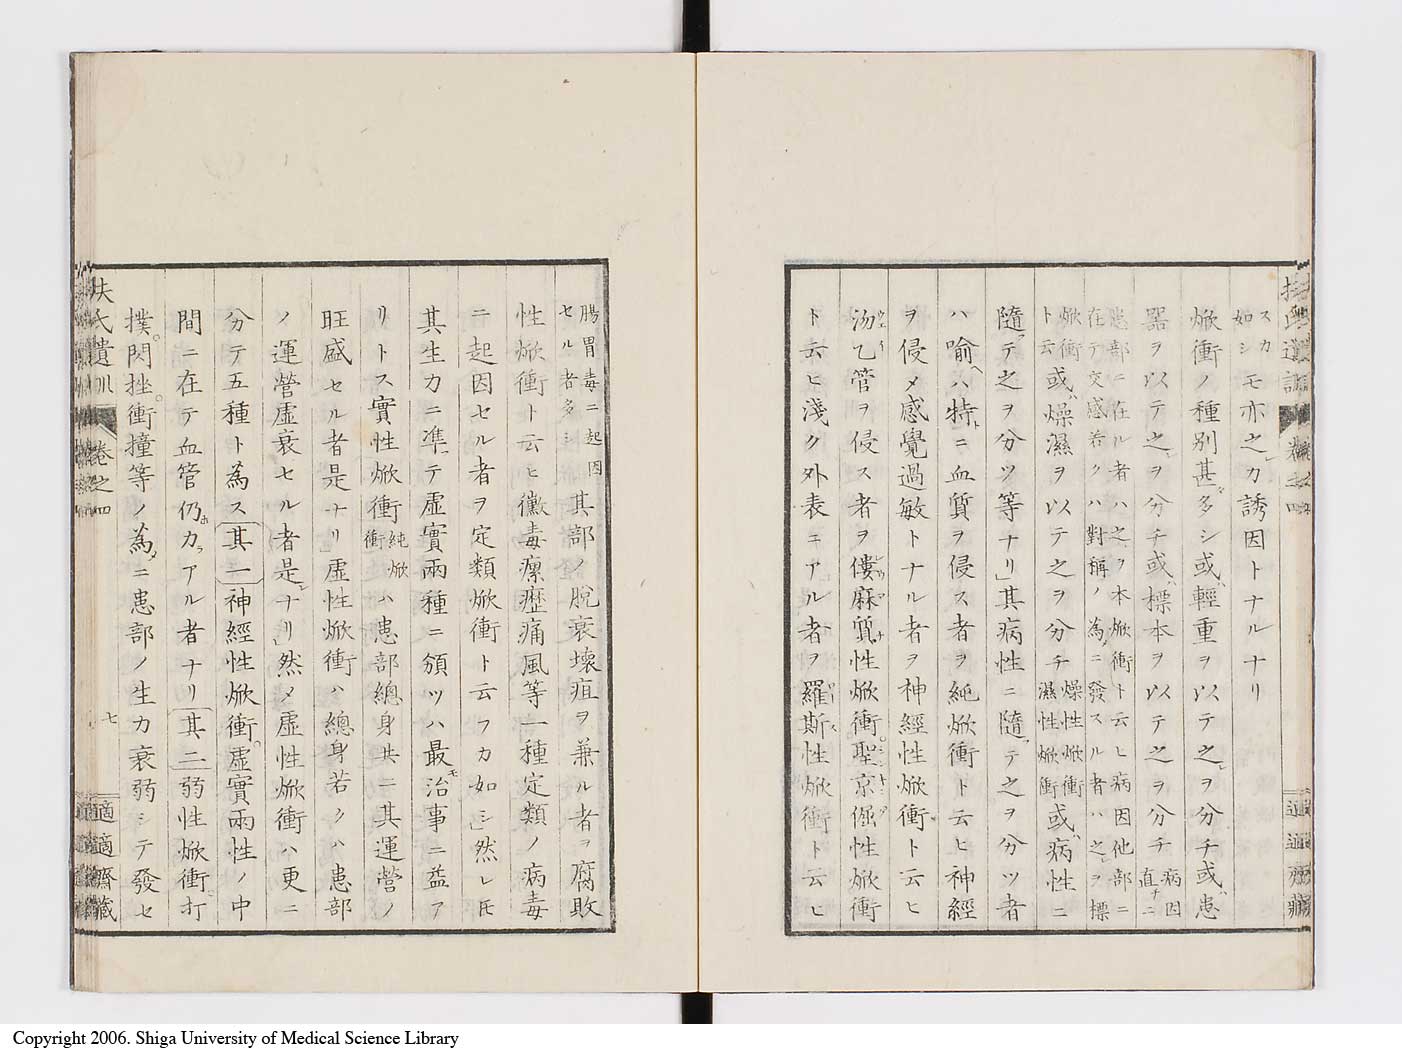 スカ
如シモ亦之カ誘因トナルナリ
焮衝ノ種別甚多シ或輕重ヲ以テ之ヲ分チ或患
器ヲ以テ之ヲ分チ或標本ヲ以テ之ヲ分チ
病因
直チニ
患部ニ在ル者ハ之ヲ本焮衝ト云ヒ病因他部ニ
在テ交感若クハ對稱ノ為ニ發スル者ハ之ヲ標
焮衝
ト云
或燥濕ヲ以テ之ヲ分チ
燥性焮衝
濕性焮衝
或病性ニ
隨テ之ヲ分ツ等ナリ」其病性ニ隨テ之ヲ分ツ者
ハ喻ヘハ特ニ血質ヲ侵ス者ヲ純焮衝ト云ヒ神經
ヲ侵メ感覺過敏トナル者ヲ神經性焮衝ト云ヒ
沕乙管ヲ侵ス者ヲ僂麻質性焮衝聖京倔性焮衝
ト云ヒ淺ク外表ニアル者ヲ羅斯性焮衝ト云ヒ
腸胃毒ニ起因
セル者多シ
其部ノ脫衰壞疽ヲ兼ル者ヲ腐敗
性焮衝ト云ヒ黴毒瘰癧痛風等一種定類ノ病毒
ニ起因セル者ヲ定類焮衝ト云フカ如シ」然レ𪜈
其生力ニ準テ虛實兩種ニ頒ツハ最治事ニ益ア
リトス實性焮衝
純焮
衝
ハ患部總身共ニ其運營ノ
旺盛セル者是ナリ」虛性焮衝ハ總身若クハ患部
ノ運營虛衰セル者是ナリ」然メ虛性焮衝ハ更ニ
分テ五種ト為ス其一神經性焮衝虛實兩性ノ中
間ニ在テ血管仍力アル者ナリ其二弱性焮衝打
撲閃挫衝撞等ノ為ニ患部ノ生力衰弱シテ發セ
扶氏遺訓
卷之四
七
適適齋藏